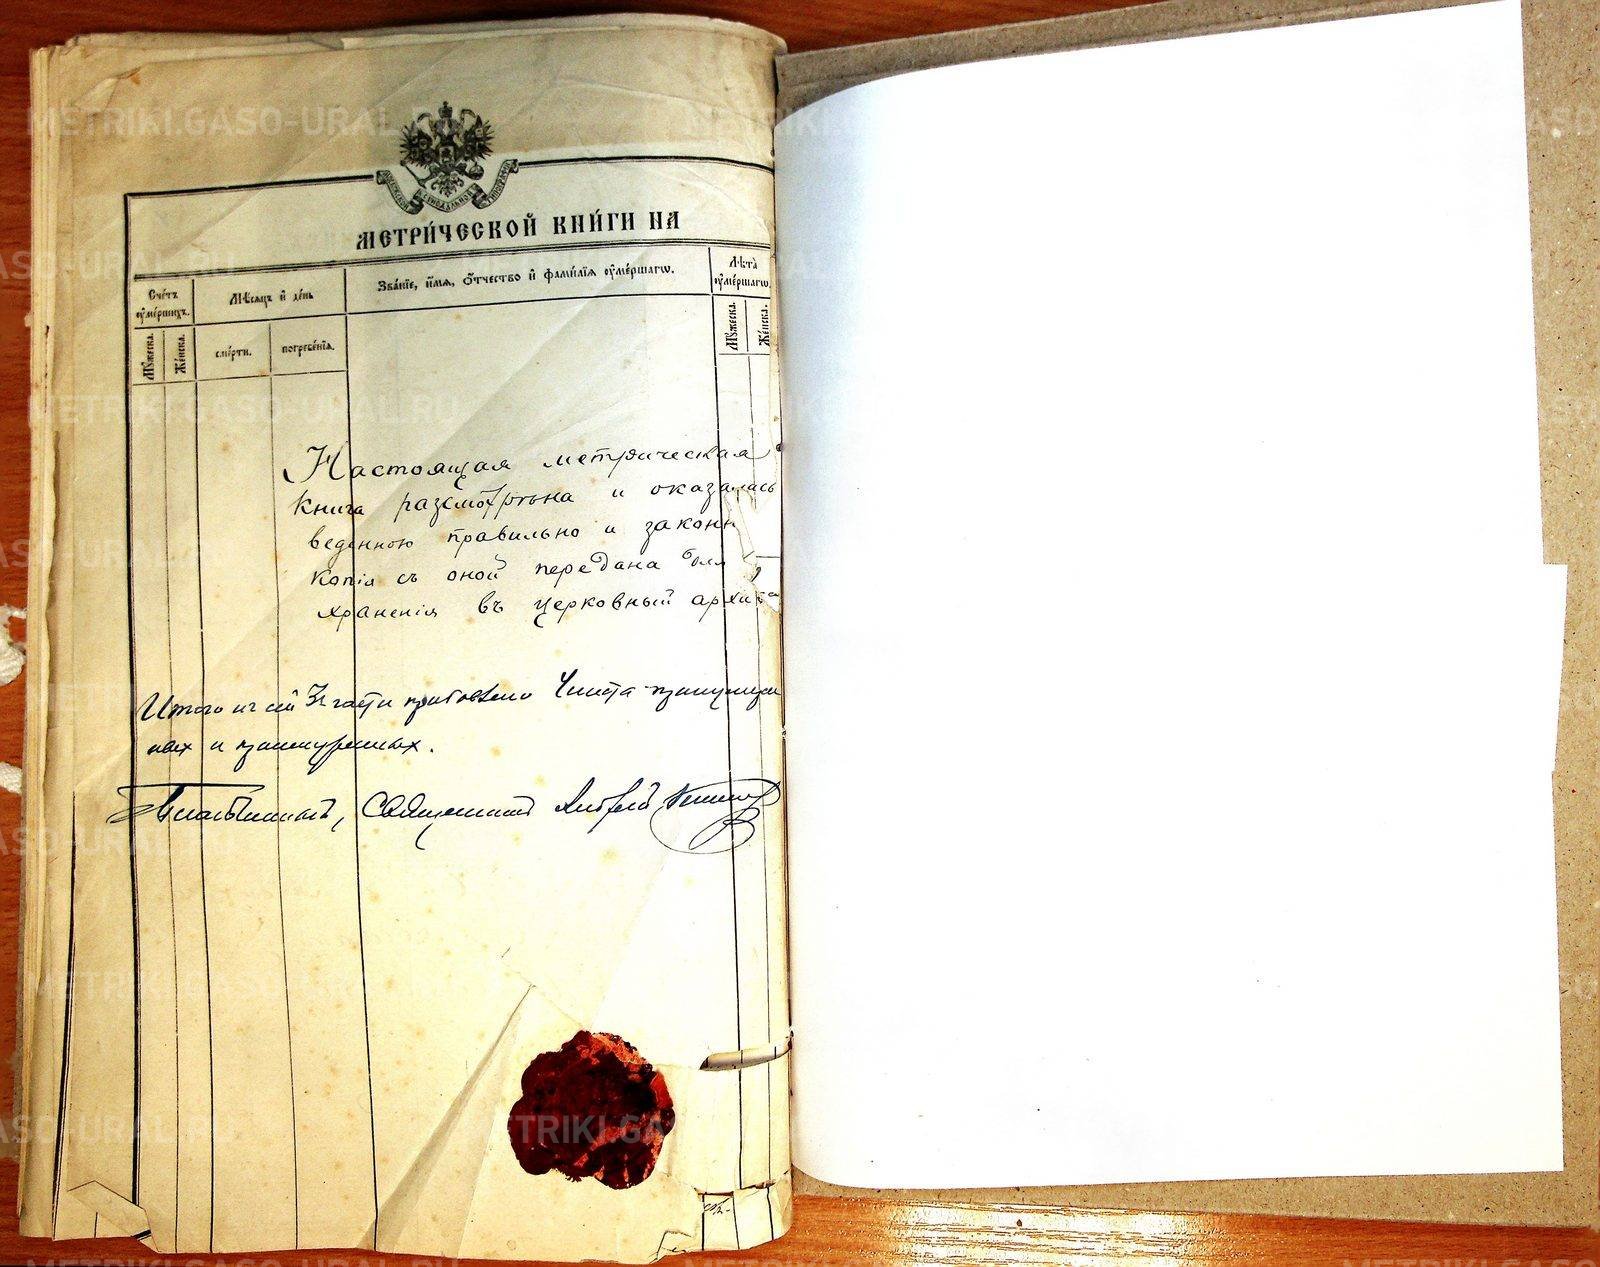 МЕТРИ́ЧЕСКОЙ КНИ́ГИ НА
Сче́тъ ᲂу҆ме́ршихъ.
Мѣ́сѧцъ и҆ де́нь
Зва́нїе, и҆́мѧ, ѻ҆́тчество и҆ фами́лїѧ ᲂу҆ме́ршагѡ.
Лѣ́та ᲂу҆ме́ршагѡ.
Мꙋ́жеска.
Же́нска.
сме́рти.
погребе́нїѧ.
Мꙋ́жеска.
Же́нска.
Настоящая метрическая
книга разсмотрѣна и оказалась
веденною правильно и законн
копія съ оной передана для
храненія въ церковный архивъ
Итого въ сей
и
Священникъ Андрей
METRIKI.GASO-URAL.RU